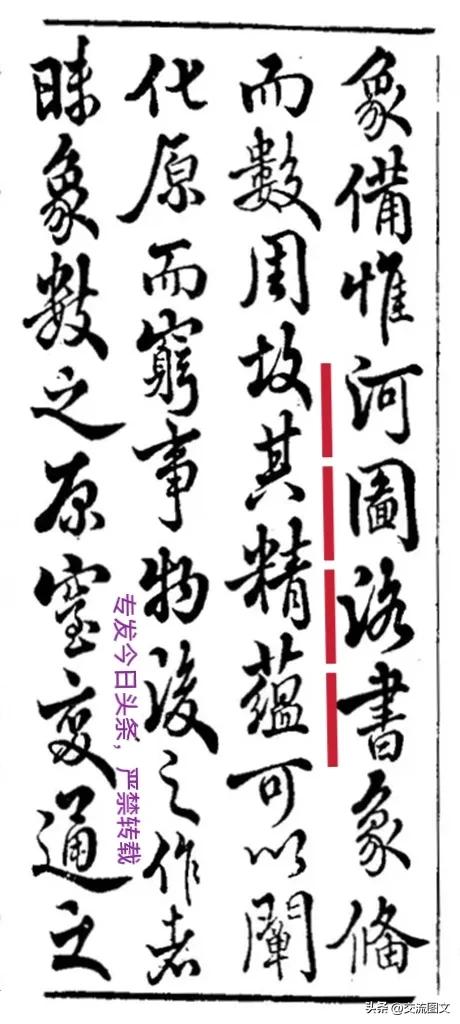 象備惟河圖洛書象俻
而數周故其精蘊可以闡
化原而窮事物後之作者
昧象數之原窒變通之
专发今日头条，严禁转载
头条 @交流图文